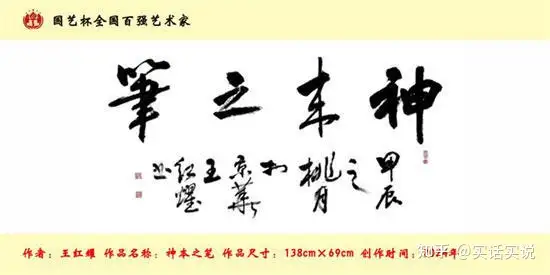 国艺杯全国百强艺术家
神来之筆
甲辰之桃月於京華王红燿书
作者：王红耀 作品名称：神本之笔 作品尺寸：138cm×69cm 创作时间：2024年
知乎 @实话实说